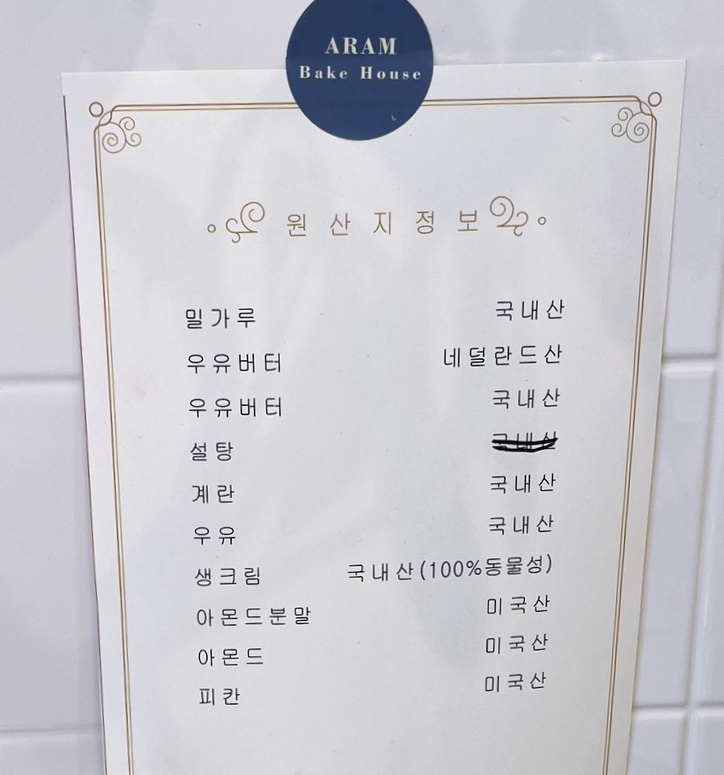 ARAM
Bake House
원산지정보
밀가루 국내산
우유버터 네덜란드산
우유버터 국내산
설탕 국내산
계란 국내산
우유 국내산
생크림 국내산(100%동물성)
아몬드분말 미국산
아몬드 미국산
피칸 미국산